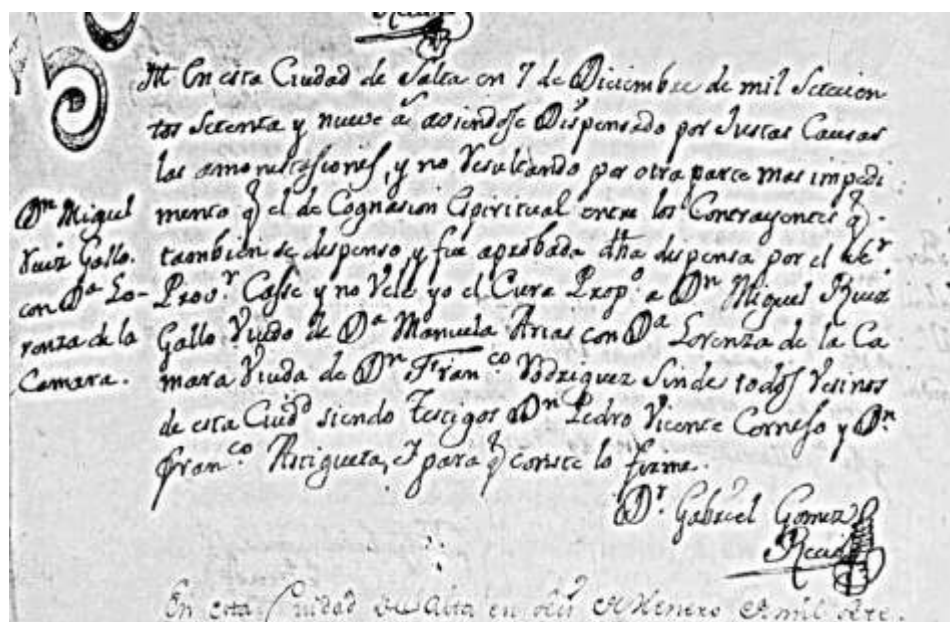 Mt. En esta Ciudad de Salta en 7 de Diciembre de mil Setecien
tos Setenta y nueve as. aviendose Dispensado por Justas Causas
las amonestasiones, y no resultando por otra parte mas impedi
mento q el de Cognasion Espiritual entre los Contrayentes q.
tambien se dispenso, y fue aprobada dha dispensa por el
Provr. Casse y no Vele yo el Cura Propo. a Dn Miguel Ruiz
Gallo Viudo de Da Manuela Arias con Da Lorenza de la Ca
mara Viuda de Dn Franco Rodriguez Sinde todos Vesinos
de esta Ciud siendo Testigos Dn Pedro Vicente Cornejo y Dn
Franco Astigueta, Y para q conste lo firme.
Dn Miguel
ruiz Gallo.
con Da Lo-
renza de la
Camara.
Dr. Gabriel Gomez
Recio
En esta Ciudad de Salta en de Henero de mil Sete.